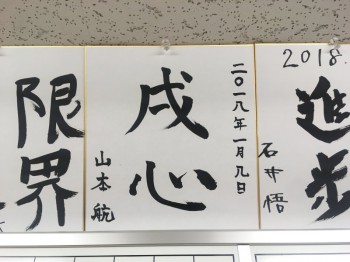 限界
戌心
二〇一八年一月九日
山本航
2018.
進歩
石井悟